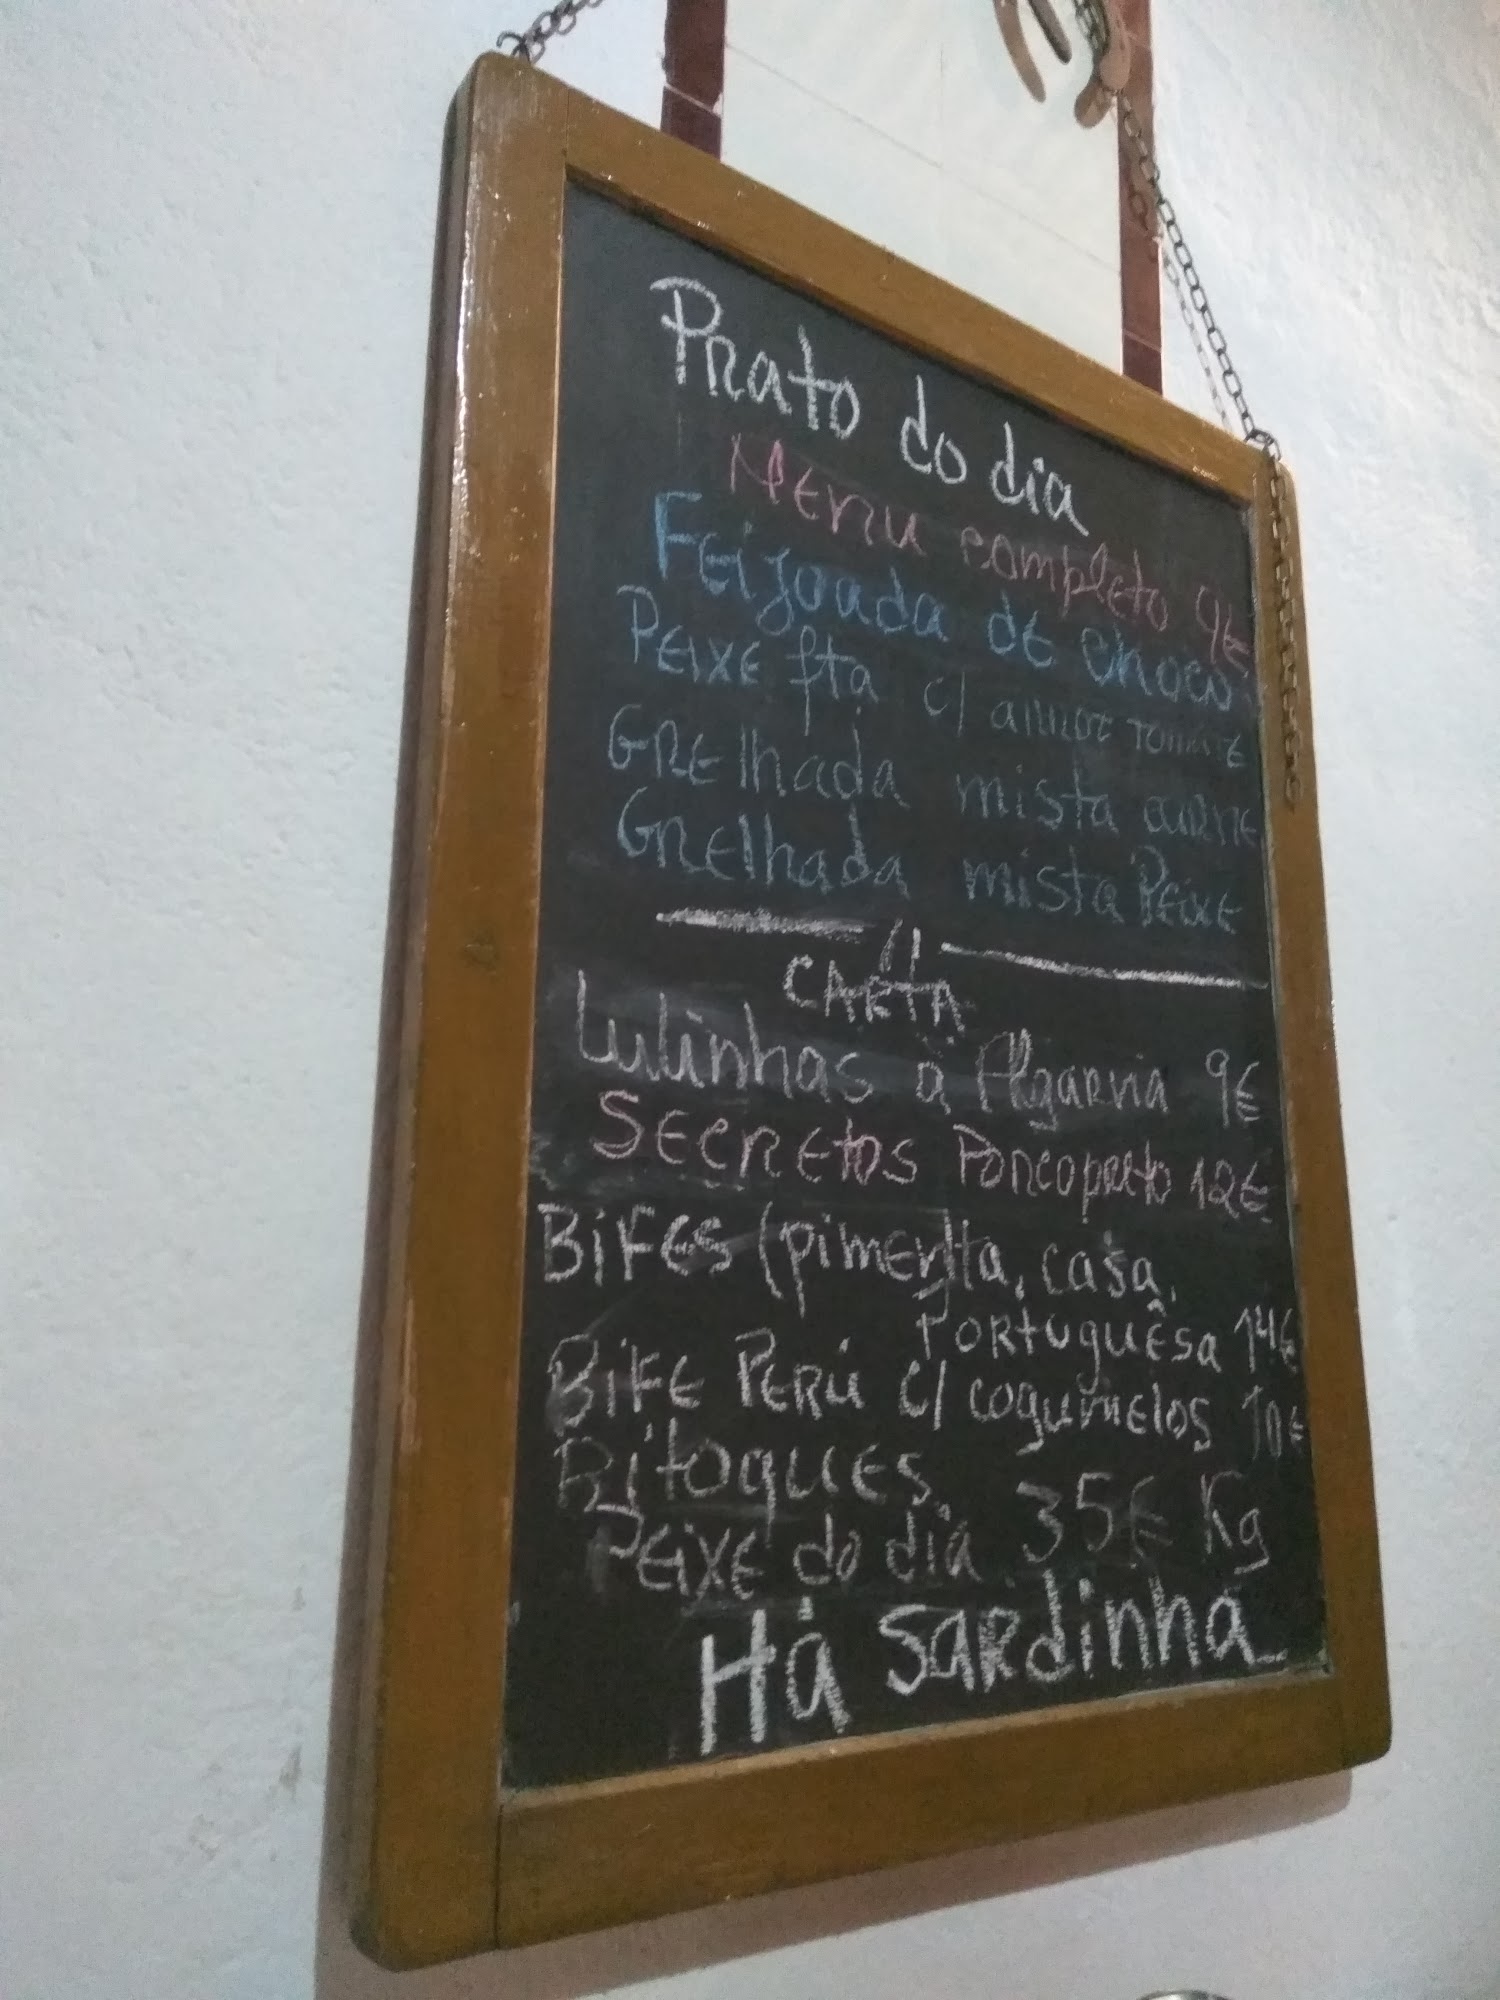 Prato do dia
Menu completo 9€
Feijoada de choco
Peixe fta c/ arroz tomate
Grelhada mista carne
Grelhada mista Peixe
Á CARTA
Lulinhas à Algarvia 9€
Secretos Porcopreto 12€
Bifes (pimenta, casa,
Portuguêsa 14€
Bife Perú c/ cogumelos 10€
Bitoques
Peixe do dia 35€ Kg
Há Sardinha